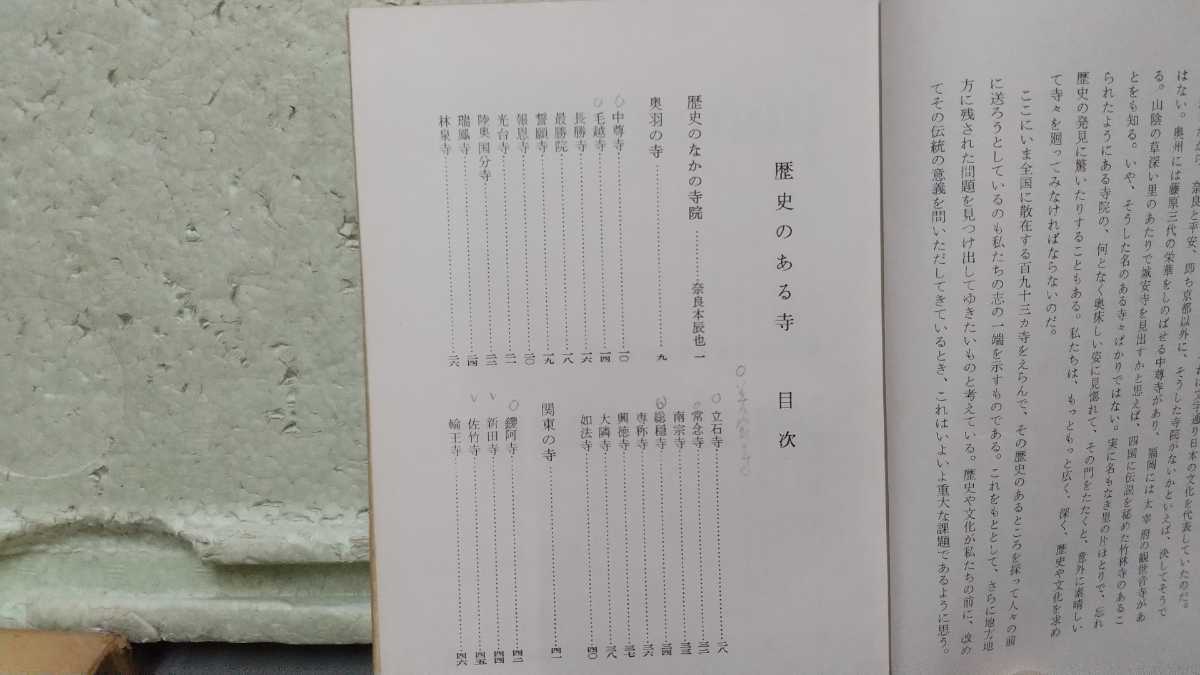 通り日本の文化を代表していたのだ。
奈良と平安、即ち京都以外に、そうした寺院がないかといえば、決してそうで
はない。奥州には藤原三代の栄華をしのばせる中尊寺があり、福岡には太宰府の観世音寺があ
る。山陰の草深い里のあたりで誠安寺を見出すかと思えば、四国に伝説を秘めた竹林寺のあるこ
とをも知る。いや、そうした名のある寺々ばかりではない。実に名もなき里の片ほとりで、忘れ
られたようにある寺院の、何となく奥床しい姿に見惚れて、その門をたたくと、意外に素晴しい
歴史の発見に驚いたりすることもある。私たちは、もっともっと広く、深く、歴史や文化を求め
て寺々を廻ってみなければならないのだ。
ここにいま全国に散在する百九十三カ寺をえらんで、その歴史のあるところを探って人々の前
に送ろうとしているのも私たちの志の一端を示すものである。これをもととして、さらに地方地
方に残された問題を見つけ出してゆきたいものと考えている。歴史や文化が私たちの前に、改め
てその伝統の意義を問いただしてきているとき、これはいよいよ重大な課題であるように思う。
歴史のある寺 目次
歴史のなかの寺院………奈良本辰也 一
奥羽の寺………九
中尊寺………一〇
毛越寺………一四
長勝寺………一六
最勝院………一八
誓願寺………一九
報恩寺………二〇
光台寺………二一
陸奥国分寺………二二
瑞鳳寺………二四
林泉寺………二六
立石寺………二八
常念寺………三二
南宗寺………三三
総穏寺………三四
専称寺………三六
興徳寺………三七
大隣寺………三八
如法寺………四〇
関東の寺………四一
鑁阿寺………四二
新田寺………四四
佐竹寺………四五
輪王寺………四六